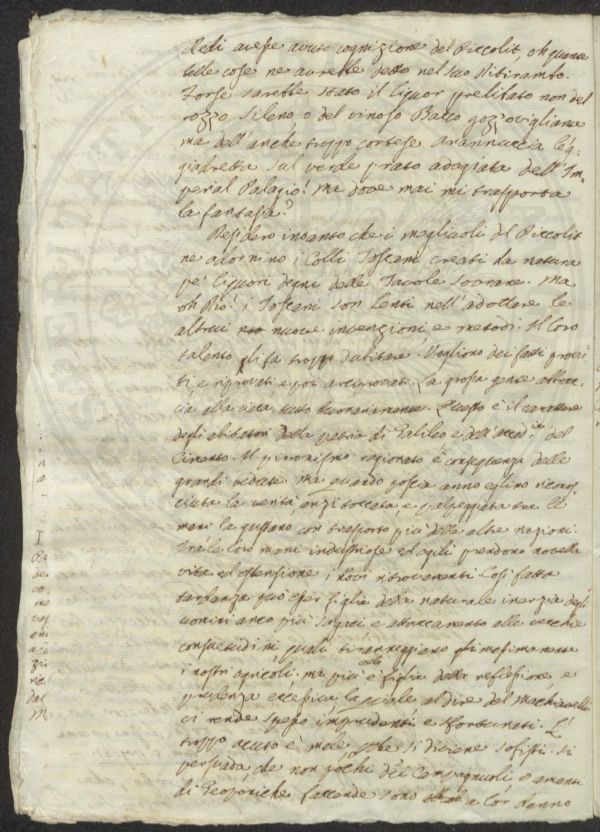 Redi avesse avuto cognizione del Piccolit, oh quante
belle cose ne avrebbe detto nel suo Ditirambo.
Forse sarebbe stato il liquor prelibato non del
rozzo Sileno o del vinoso Bacco gozzovigliante
ma dell'anche troppo cortese Arannuccia leg-
giadretta sul verde prato adagiata dell'Im-
perial Palagio! Ma dove mai mi trasporta
la fantasia?
Desidero intanto che i magliuoli del Piccolit
ne adornino i Colli Toscani creati da natura
pe' liquori degni delle Tavole Sovrane. Ma
oh Dio! i Toscani son lenti nell'adottare le
altrui nuove invenzioni e metodi. Il loro
talento gli fa troppo dubitare. Vogliono dei fatti provati
e riprovati e poi arciprovati. La grossa gente abbrac-
cia alla cieca tutto buonamente. Questo è il carattere
degli abitatori della patria di Galileo e dell'accad.ia del
Cimento. Il pirronismo ragionato è conseguenza delle
grandi vedute ma quando poscia anno eglino ricono-
sciuta la verità anzi toccata, e palpeggiata tra le
mani la gustano con trasporto più delle altre nazioni.
Tra le loro mani industriose ed agili prendono novella
vita ed estensione i novi ritrovamenti. Così fatta
tardanza può esser figlia della naturale inerzia degli
uomini anco più sagaci e attaccamento alle vecchie
consuetudini quali tiranneggiano
i nostri agricoli. ma più è figlia della reflessione e
prudenza eccessiva la quale al dire del Machiavelli
ci rende spesso imprudenti e sfortunati. L'
troppo acuto è mole, che si diciene sofisti. Si
persuada che non pochi dei Campagnuoli o amanti
di Georgiche faccende sono a lor danno